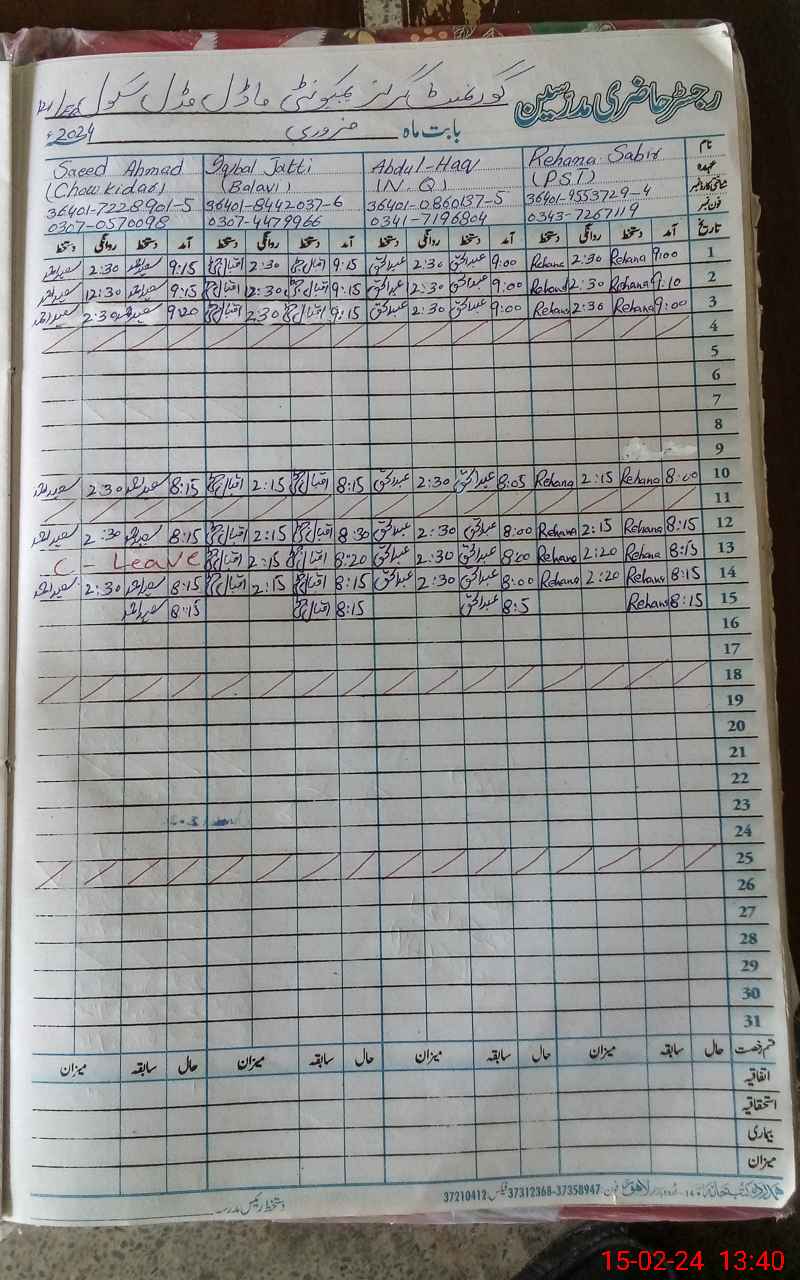 رجسٹر حاضری مدرسین گورنمنٹ گرلز کمیونٹی ماڈل مڈل سکول
بابت ماہ فروری 2024ء
نام Rehana Sabir Abdul-Haq Iqbal Jatti Saeed Ahmad
عہدہ (P.S.T) (N.Q) (Balavi) (Chowkidar)
شناختی کارڈ نمبر 36401-9553729-4 36401-0860137-5 36401-8442037-6 36401-7228901-5
فون نمبر 0343-7267119 0341-7196804 0307-4479966 0307-0570098
تاریخ آمد دستخط روانگی دستخط آمد دستخط روانگی دستخط آمد دستخط روانگی دستخط آمد دستخط روانگی دستخط
1 9:00 Rehana 2:30 Rehana 9:00 عبدالحق 2:30 عبدالحق 9:15 اقبال 2:30 اقبال 9:15 سعیداحمد 2:30 سعیداحمد
2 9:10 Rehana 2:30 Rehana 9:00 عبدالحق 12:30 عبدالحق 9:15 اقبال 12:30 اقبال 9:15 سعیداحمد 12:30 سعیداحمد
3 9:00 Rehana 2:30 Rehana 9:00 عبدالحق 2:30 عبدالحق 9:15 اقبال 2:30 اقبال 9:20 سعیداحمد 2:30 سعیداحمد
4
5
6
7
8
9
10 8:00 Rehana 2:15 Rehana 8:05 عبدالحق 2:30 عبدالحق 8:15 اقبال 2:15 اقبال 8:15 سعیداحمد 2:30 سعیداحمد
11
12 8:15 Rehana 2:15 Rehana 8:00 عبدالحق 2:30 عبدالحق 8:30 اقبال 2:15 اقبال 8:15 سعیداحمد 2:30 سعیداحمد
13 8:15 Rehana 2:20 Rehana 8:00 عبدالحق 2:30 عبدالحق 8:20 اقبال 2:15 اقبال C - Leave
14 8:15 Rehana 2:20 Rehana 8:00 عبدالحق 2:30 عبدالحق 8:15 اقبال 2:15 اقبال 8:15 سعیداحمد 2:30 سعیداحمد
15 8:15 Rehana 8:5 عبدالحق 8:15 اقبال 8:15 سعیداحمد
16
17
18
19
20
21
22
23
24
25
26
27
28
29
30
31
قسم رخصت حال سابقہ میزان حال سابقہ میزان حال سابقہ میزان حال سابقہ میزان
اتفاقیہ
استحقاقیہ
بیماری
میزان
ہمدرد کتب خانہ لاہور فون: 37358947-37312368 فیکس 37210412
دستخط رئیس مدرسہ
15-02-24 13:40